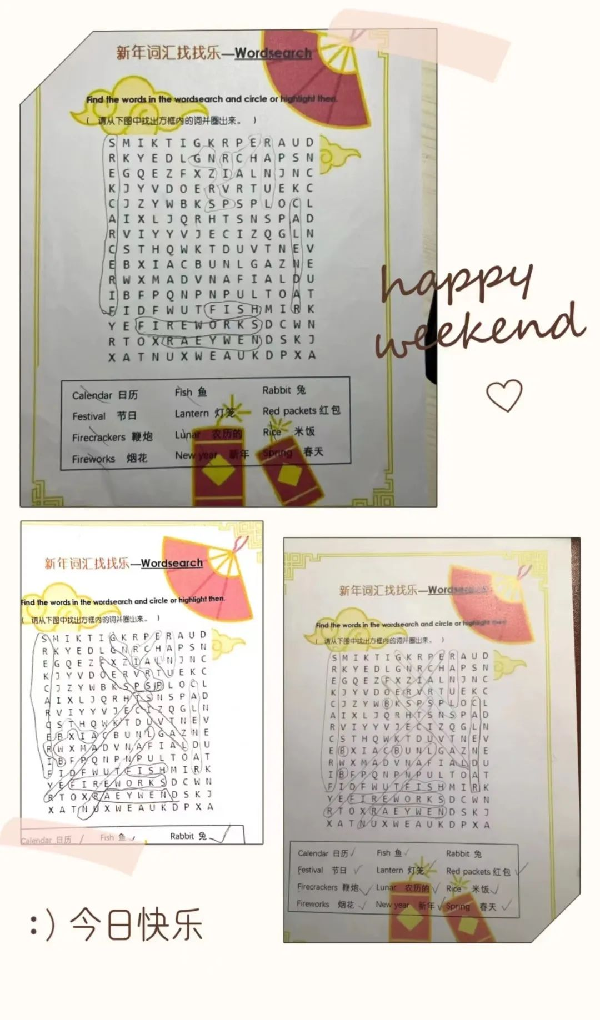 新年词汇找找乐—Wordsearch
Find the words in the wordsearch and circle or highlight then.
( 请从下图中找出方框内的词并圈出来。 )
S M I K T I G K R P E R A U D
R K Y E D L G N R C H A P S N
E G Q E Z F X Z I A L N J N C
K J Y V D O E R V R T U E K C
C J Z Y W B K S P S P L O C L
A I X L J Q R H T S N S P A D
R V I Y Y V J E C I Z Q G L N
C S T H Q W K T D U V T N E V
E B X I A C B U N L G A Z N E
R W X M A D V N A F I A L D U
I B F P Q N P N P U L T O A T
F I D F W U T F I S H M I R K
Y E F I R E W O R K S D C W N
R T O X R A E Y W E N D S K J
X A T N U X W E A U K D P X A
Calendar 日历 Fish 鱼 Rabbit 兔
Festival 节日 Lantern 灯笼 Red packets 红包
Firecrackers 鞭炮 Lunar 农历的 Rice 米饭
Fireworks 烟花 New year 新年 Spring 春天
happy
weekend
新年词汇找找乐—Wordsearch
Find the words in the wordsearch and circle or highlight then.
( 请从下图中找出方框内的词并圈出来。 )
S M I K T I G K R P E R A U D
R K Y E D L G N R C H A P S N
E G Q E Z F X Z I A L N J N C
K J Y V D O E R V R T U E K C
C J Z Y W B K S P S P L O C L
A I X L J Q R H T S N S P A D
R V I Y Y V J E C I Z Q G L N
C S T H Q W K T D U V T N E V
E B X I A C B U N L G A Z N E
R W X M A D V N A F I A L D U
I B F P Q N P N P U L T O A T
F I D F W U T F I S H M I R K
Y E F I R E W O R K S D C W N
R T O X R A E Y W E N D S K J
X A T N U X W E A U K D P X A
Calendar 日历 Fish 鱼 Rabbit 兔
新年词汇找找乐—Wordsearch
Find the words in the wordsearch and circle or highlight then.
( 请从下图中找出方框内的词并圈出来。 )
S M I K T I G K R P E R A U D
R K Y E D L G N R C H A P S N
E G Q E Z F X Z I A L N J N C
K J Y V D O E R V R T U E K C
C J Z Y W B K S P S P L O C L
A I X L J Q R H T S N S P A D
R V I Y Y V J E C I Z Q G L N
C S T H Q W K T D U V T N E V
E B X I A C B U N L G A Z N E
R W X M A D V N A F I A L D U
I B F P Q N P N P U L T O A T
F I D F W U T F I S H M I R K
Y E F I R E W O R K S D C W N
R T O X R A E Y W E N D S K J
X A T N U X W E A U K D P X A
Calendar 日历 Fish 鱼 Rabbit 兔
Festival 节日 Lantern 灯笼 Red packets 红包
Firecrackers 鞭炮 Lunar 农历的 Rice 米饭
Fireworks 烟花 New year 新年 Spring 春天
:) 今日快乐